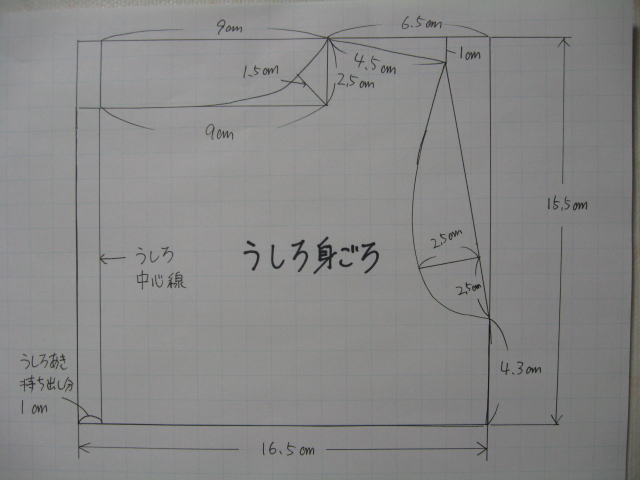 9cm
6.5cm
1cm
4.5cm
1.5cm
2.5cm
9cm
15.5cm
うしろ
中心線
うしろ身ごろ
2.5cm
2.5cm
うしろあき
持ち出し分
1cm
4.3cm
16.5cm